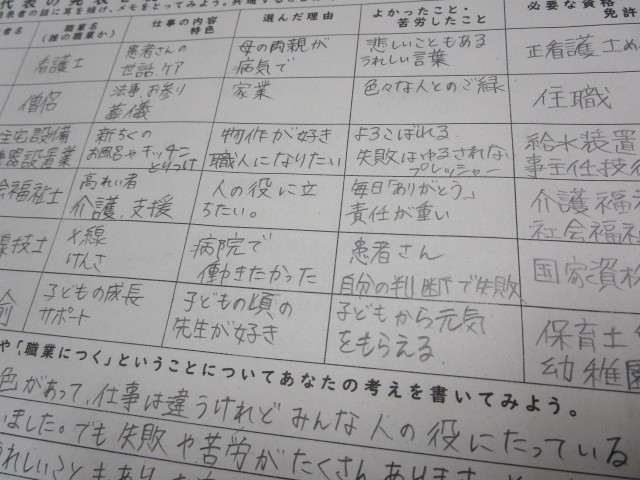 代表の発表
発表者の話に耳を傾け、メモをとってみよう。
者名 職業名 仕事の内容 選んだ理由 よかったこと・ 必要な資格
(誰の職業か) 特色 苦労したこと 免許
看護士 患者さんの 母の両親が 悲しいこともある 正看護士
世話、ケア 病気で うれしい言葉
僧侶 法事、お参り 家業 色々な人とのご縁 住職
葬儀
住宅設備 新ちくの 物作が好き よろこばれる 給水装置
機器設置業 お風呂やキッチン 職人になりたい 失敗はゆるされな 事主任技
とりつけ プレッシャー
福祉士 高れい者 人の役に立 毎日「ありがとう」 介護福
介護、支援 ちたい。 責任が重い 社会福祉
線技士 X線 病院で 患者さん 国家資格
けんさ 働きたかった 自分の判断で失敗
諭 子どもの成長 子どもの頃の 子どもから元気 保育士
サポート 先生が好き をもらえる 幼稚園
や「職業につく」ということについてあなたの考えを書いてみよう。
色があって、仕事は違うけれどみんな人の役にたっている
いました。でも失敗や苦労がたくさんあります
うれしいこともあり